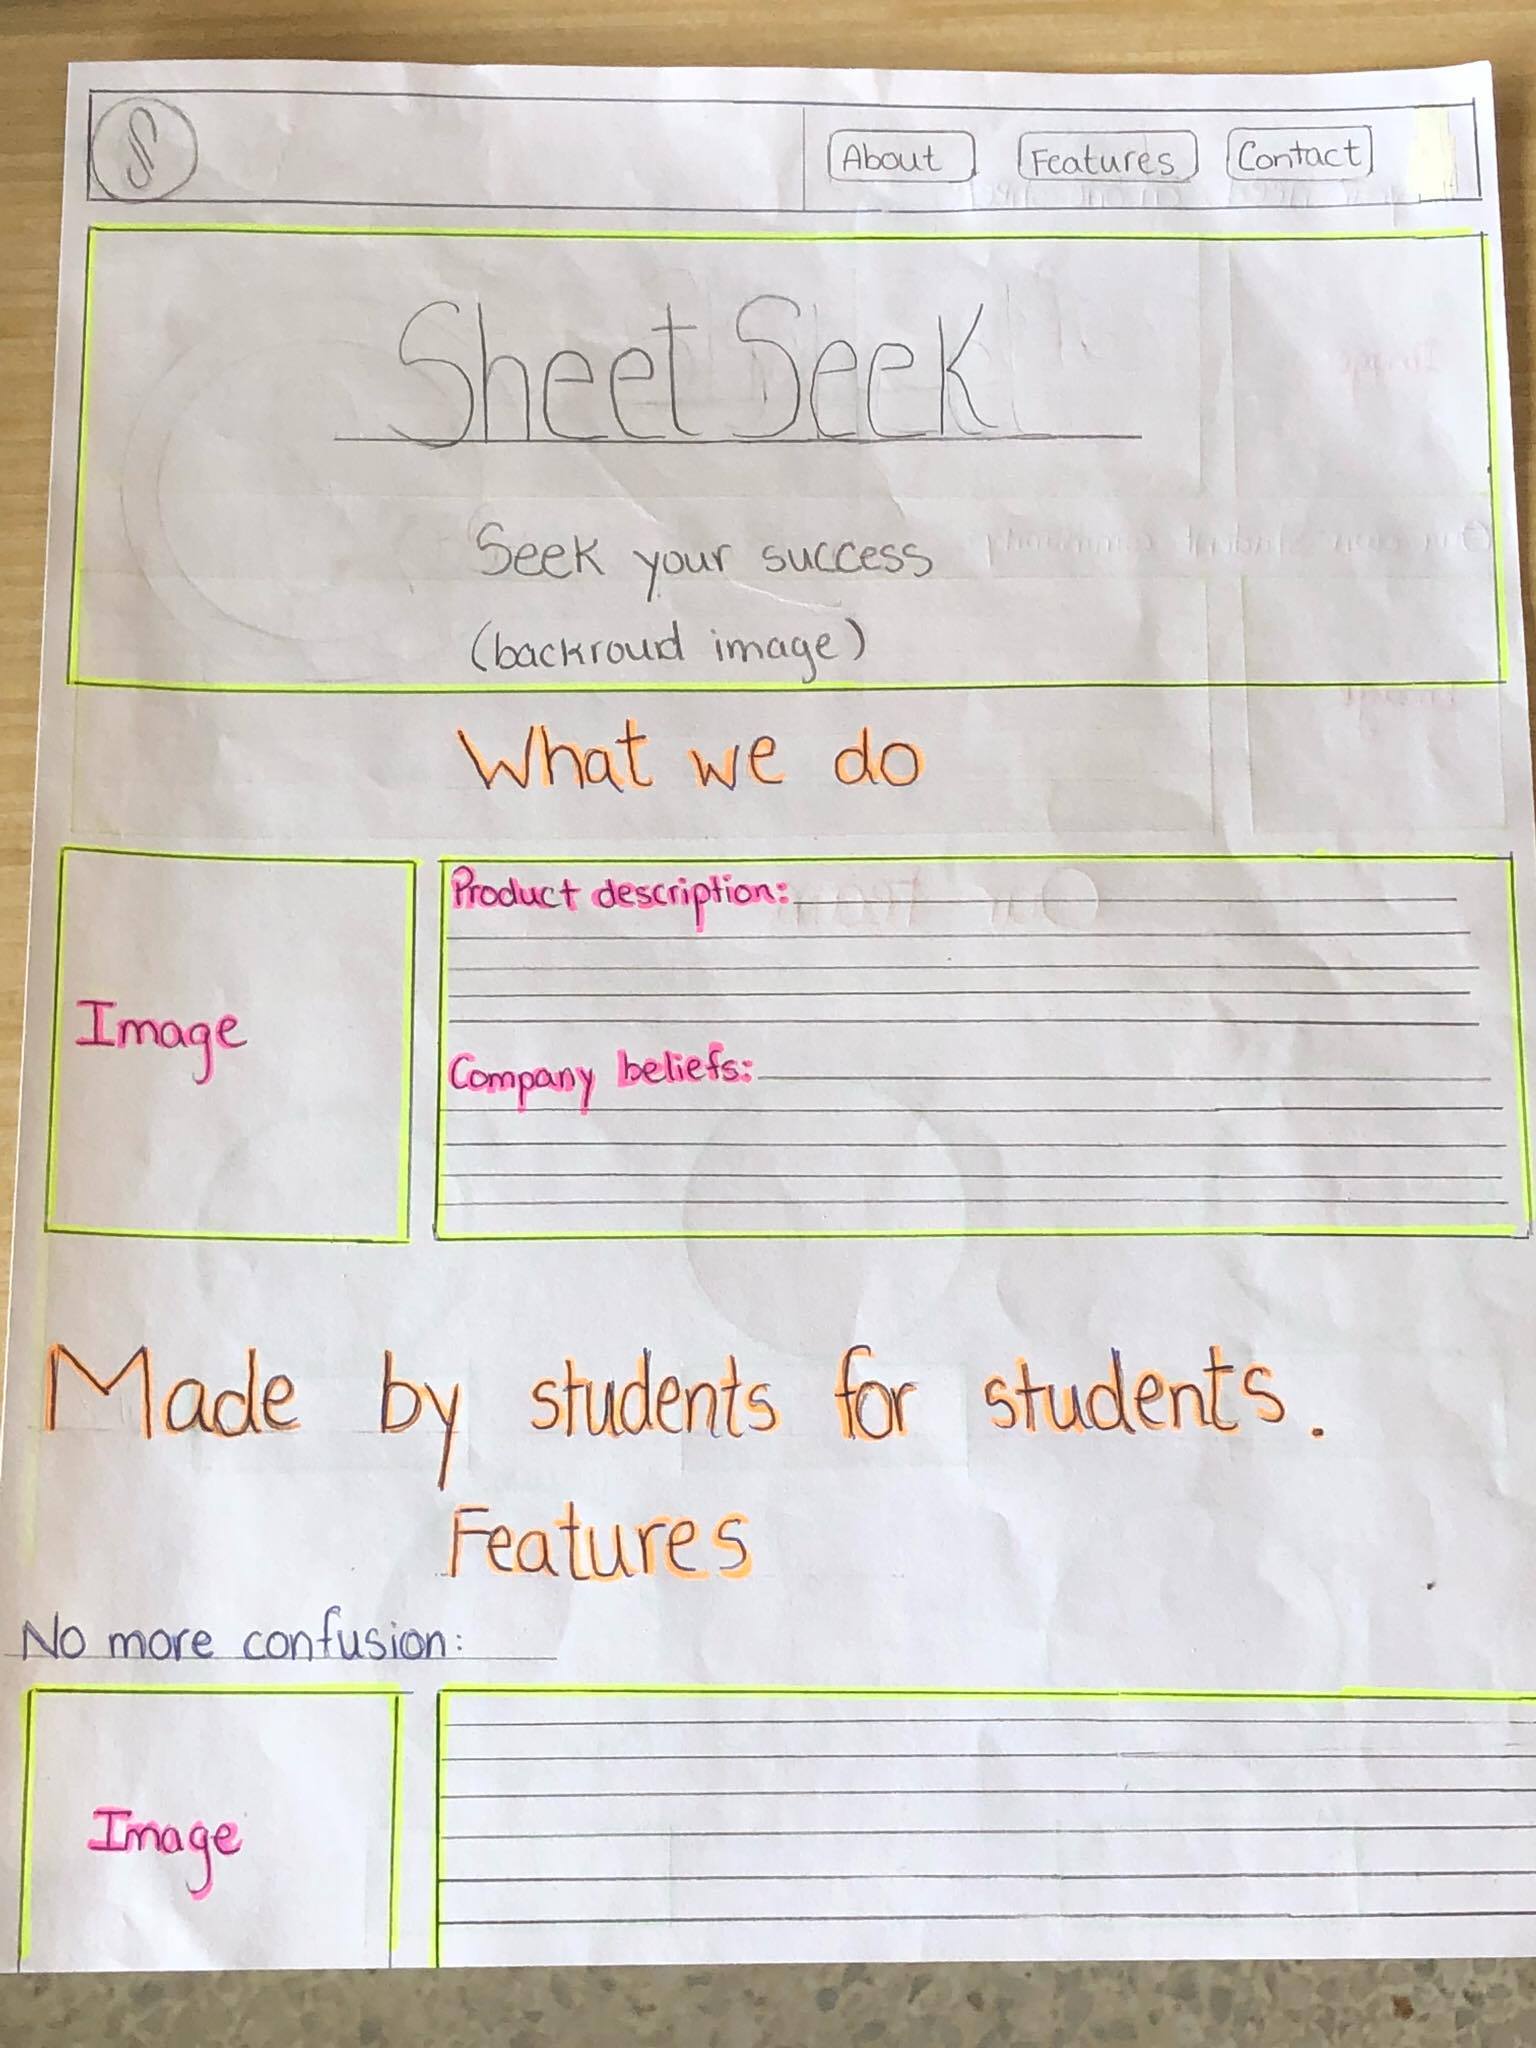 About Features Contact
Sheet Seek
Seek your success
(backroud image)
What we do
Product description:
Image
Company beliefs:
Made by students for students.
Features
No more confusion:
Image